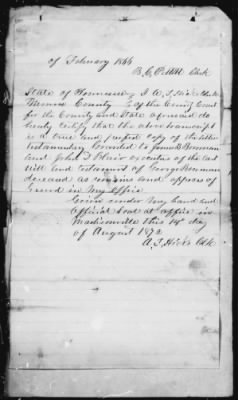 of February 1844
B. C. Pettitt Clerk
State of Tennessee } I A. J. Hicks Clerk
Monroe County } of the County Court
for the County and State aforesaid do
hereby certify that the above transcript
is a true and perfect copy of the letter
testamentary Granted to James Bowman
and John F. executors of the last
Will and testament of George Bowman
deceased as remains and appears of
record in My Office
Given under my hand and
Official Seal at office in
Madisonville this 14th day
of August 1872
A. J. Hicks Clk